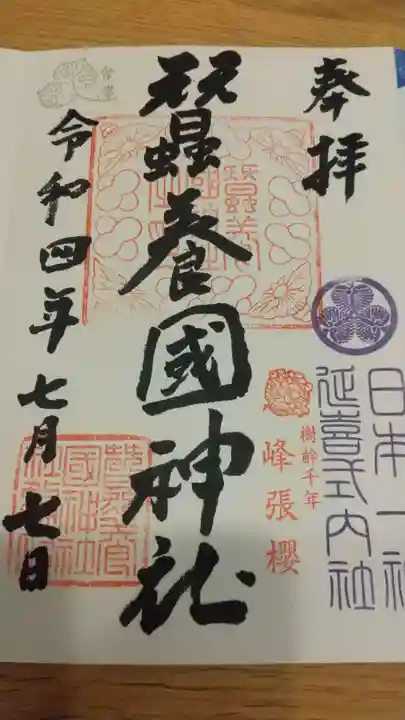 奉拝
日本一社
延喜式内社
樹齢千年
峰張櫻
蠶養國神社
會津
令和四年七月七日